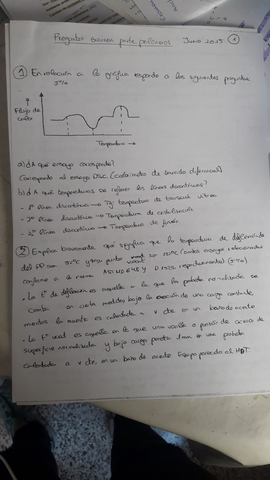 Preguntas examen parte polímeros Junio 2015 1
1 En relación a la gráfica responde a las siguientes preguntas
Flujo de
calor
Temperatura →
a) ¿A qué ensayo corresponde?
Corresponde al ensayo DSC (calorimetría de barrido diferencial)
b) ¿A qué temperaturas se refieren las líneas discontinuas?
- 1ª línea discontinua → Tg temperatura de transición vítrea
- 2ª línea discontinua → Temperatura de cristalización
- 3ª línea discontinua → Temperatura de fusión
2 Explica brevemente qué significa que la temperatura de
del PP sea y su punto vicat ºC (ambos ensayos
conforme a la norma ASTM D648 y D 1525 respectivamente)
- La Tª de deflexión es aquella a la que la probeta normalizada se
comba una cierta medida bajo la acción de una carga constante,
mientras la muestra es calentada a v cte en un baño de aceite
- La Tª vicat es aquella en la que una varilla o punzón de acero de
superficie normalizada y bajo carga penetra 1mm en una probeta
calentada a v cte. en un baño de aceite. Equipo parecido al HDT.